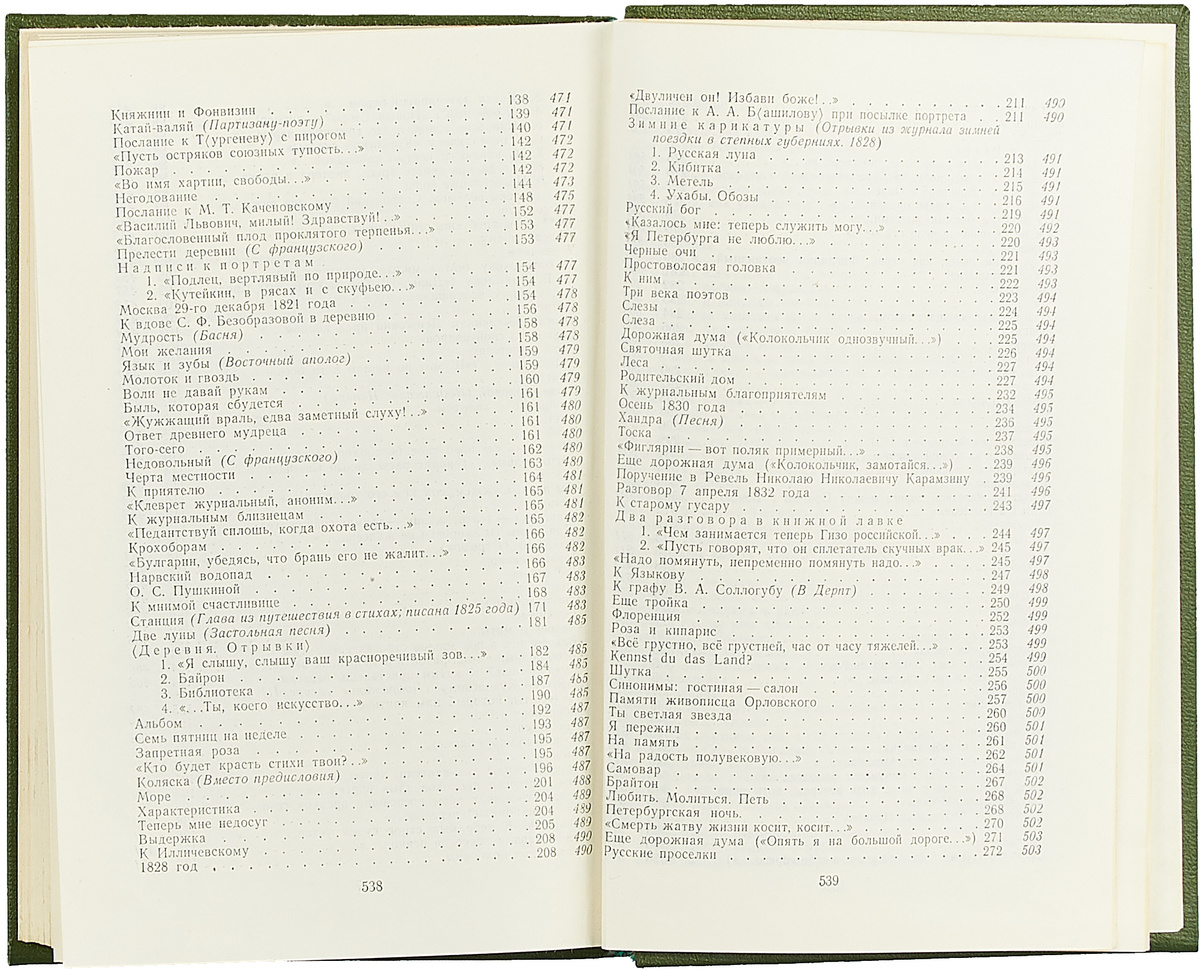 Княжнин и Фонвизин . . . . . 138 471
Катай-валяй (Партизану-поэту) . . . . . 139 471
Послание к Т⟨ургеневу⟩ с пирогом . . . . . 140 471
«Пусть остряков союзных тупость...» . . . . . 142 472
Пожар . . . . . 142 472
«Во имя хартии, свободы...» . . . . . 142 472
Негодование . . . . . 144 473
Послание к М. Т. Каченовскому . . . . . 148 475
«Василий Львович, милый! Здравствуй!..» . . . . . 152 477
«Благословенный плод проклятого терпенья...» . . . . . 153 477
Прелести деревни (С французского) . . . . . 153 477
Надписи к портретам
1. «Подлец, вертлявый по природе...» . . . . . 154 477
2. «Кутейкин, в рясах и с скуфьею...» . . . . . 154 477
Москва 29-го декабря 1821 года . . . . . 154 478
К вдове С. Ф. Безобразовой в деревню . . . . . 156 478
Мудрость (Басня) . . . . . 158 478
Мои желания . . . . . 158 478
Язык и зубы (Восточный аполог) . . . . . 159 479
Молоток и гвоздь . . . . . 159 479
Воли не давай рукам . . . . . 160 479
Быль, которая сбудется . . . . . 161 479
«Жужжащий враль, едва заметный слуху!..» . . . . . 161 480
Ответ древнего мудреца . . . . . 161 480
Того-сего . . . . . 161 480
Недовольный (С французского) . . . . . 162 480
Черта местности . . . . . 163 480
К приятелю . . . . . 164 481
«Клеврет журнальный, аноним...» . . . . . 165 481
К журнальным близнецам . . . . . 165 481
«Педантствуй сплошь, когда охота есть...» . . . . . 165 482
Крохоборам . . . . . 166 482
«Булгарин, убедясь, что брань его не жалит...» . . . . . 166 482
Нарвский водопад . . . . . 166 483
О. С. Пушкиной . . . . . 167 483
К мнимой счастливице . . . . . 168 483
Станция (Глава из путешествия в стихах; писана 1825 года) 171 483
Две луны (Застольная песня) . . . . . 181 485
⟨Деревня. Отрывки⟩
1. «Я слышу, слышу ваш красноречивый зов...» . . 182 485
2. Байрон . . . . . 184 485
3. Библиотека . . . . . 187 485
4. «...Ты, коего искусство...» . . . . . 190 485
Альбом . . . . . 192 487
Семь пятниц на неделе . . . . . 193 487
Запретная роза . . . . . 195 487
«Кто будет красть стихи твои?..» . . . . . 195 487
Коляска (Вместо предисловия) . . . . . 196 487
Море . . . . . 201 488
Характеристика . . . . . 204 489
Теперь мне недосуг . . . . . 204 489
Выдержка . . . . . 205 489
К Илличевскому . . . . . 208 490
1828 год . . . . . 208 490
538
«Двуличен он! Избави боже!..» . . . . . 211 490
Послание к А. А. Б⟨ашилову⟩ при посылке портрета . . 211 490
Зимние карикатуры (Отрывки из журнала зимней
поездки в степных губерниях. 1828)
1. Русская луна . . . . . 213 491
2. Кибитка . . . . . 214 491
3. Метель . . . . . 215 491
4. Ухабы. Обозы . . . . . 216 491
Русский бог . . . . . 219 491
«Казалось мне: теперь служить могу...» . . . . . 220 492
«Я Петербурга не люблю...» . . . . . 220 493
Черные очи . . . . . 221 493
Простоволосая головка . . . . . 221 493
К ним . . . . . 222 493
Три века поэтов . . . . . 223 494
Слезы . . . . . 224 494
Слеза . . . . . 225 494
Дорожная дума («Колокольчик однозвучный...») . . . 225 494
Святочная шутка . . . . . 226 494
Леса . . . . . 227 494
Родительский дом . . . . . 227 494
К журнальным благоприятелям . . . . . 232 495
Осень 1830 года . . . . . 234 495
Хандра (Песня) . . . . . 236 495
Тоска . . . . . 237 495
«Фиглярин — вот поляк примерный...» . . . . . 238 495
Еще дорожная дума («Колокольчик, замотайся...») . . 239 496
Поручение в Ревель Николаю Николаевичу Карамзину . 239 496
Разговор 7 апреля 1832 года . . . . . 241 496
К старому гусару . . . . . 243 497
Два разговора в книжной лавке
1. «Чем занимается теперь Гизо российской...» . . . 244 497
2. «Пусть говорят, что он сплетатель скучных врак...» 245 497
«Надо помянуть, непременно помянуть надо...» . . . . 245 497
К Языкову . . . . . 247 498
К графу В. А. Соллогубу (В Дерпт) . . . . . 249 498
Еще тройка . . . . . 250 499
Флоренция . . . . . 252 499
Роза и кипарис . . . . . 253 499
«Всё грустно, всё грустней, час от часу тяжелей...» . . . 253 499
Kennst du das Land? . . . . . 254 499
Шутка . . . . . 255 500
Синонимы: гостиная — салон . . . . . 256 500
Памяти живописца Орловского . . . . . 257 500
Ты светлая звезда . . . . . 260 500
Я пережил . . . . . 260 501
На память . . . . . 261 501
«На радость полувековую...» . . . . . 262 501
Самовар . . . . . 264 501
Брайтон . . . . . 267 502
Любить. Молиться. Петь . . . . . 268 502
Петербургская ночь. . . . . . 268 502
«Смерть жатву жизни косит, косит...» . . . . . 270 502
Еще дорожная дума («Опять я на большой дороге...») 271 503
Русские проселки . . . . . 272 503
539